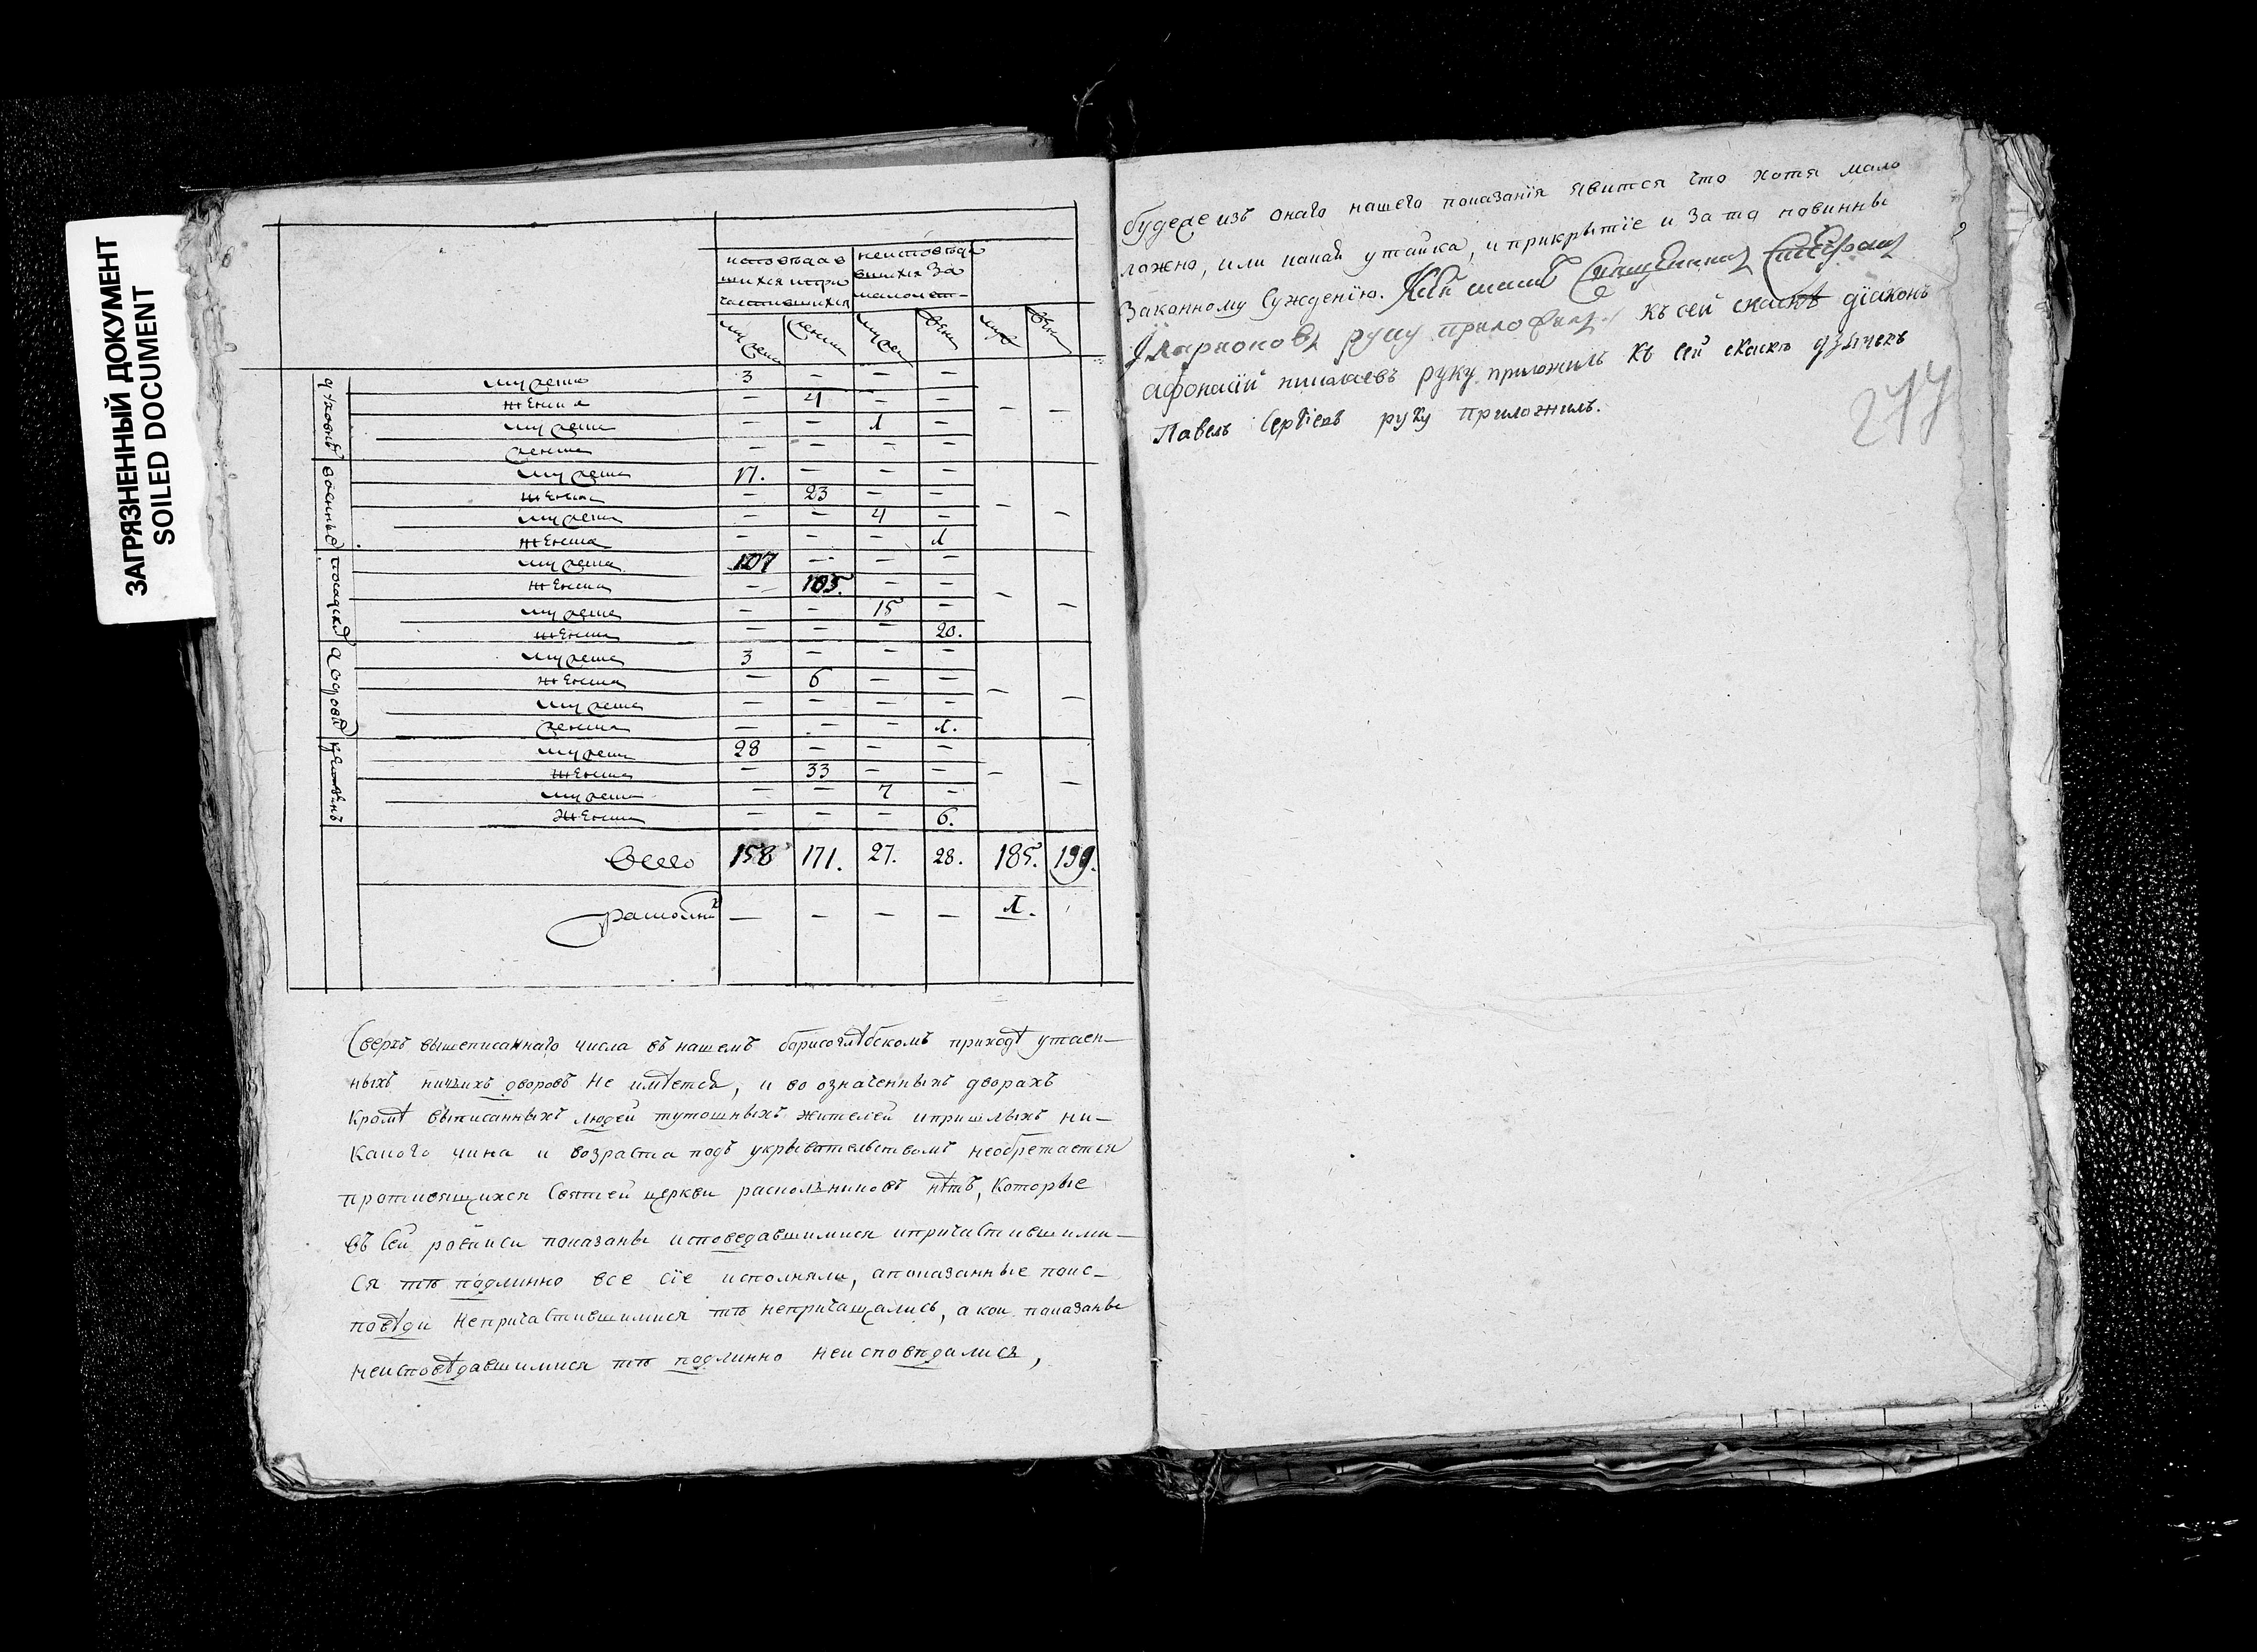 ЗАГРЯЗНЕННЫЙ ДОКУМЕНТ
SOILED DOCUMENT
исповѣдав неисповѣда
шихся ипри вшихся за
частившихся малолѣт-
мужеск женск мужеск жен муж жен
духовны мужеска 3 — — —
женска — 4 — —
мужеска — — 1 —
женска — — — —
военныя мужеска 17. — — —
женска — 23 — —
мужеска — — 4 —
женска — — — 1
посадския мужеска 107 — — —
женска — 105. — —
мужеска — — 15 —
женска — — — 20.
дворовыя мужеска 3 — — —
женска — 6 — —
мужеска — — — —
женска — — — 1.
мужеска 28 — — —
женска — 33 — —
мужеска — — 7 —
женска — — — 6.
всего 158 171. 27. 28. 185. 199.
— — — — 1.
Сверхъ вышеписаннаго числа въ нашемъ борисоглѣбскомъ приходѣ утаен—
ныхъ ничьихъ дворовъ не имѣется, и во означенныхъ дворахъ
кромѣ выписанныхъ людей тутошныхъ жителей ипришлыхъ ни—
какого чина и возраста подъ укрывательствомъ необретается
противящихся святей церкви раскольниковъ нѣтъ, которые
въ сей росписи показаны исповедавшимися ипричастившими—
ся тѣ подлинно все сїе исполняли, апоказанные поис—
повѣди непричастившимися тѣ непричащались, а кои показаны
неисповѣдавшимися тѣ подлинно неисповѣдались,
будеже изъ онаго нашего показанїя явится что хотя мало
ложно, или какая утайка, и прикрытїе и за то повинны
законному сужденїю. Ксей скаске священникъ
Иларионовъ руку приложилъ къ сей скаскѣ дїаконъ
афонасїй николаевъ руку приложилъ къ сей скаскѣ дьячекъ
Павелъ Сергїевъ руку приложилъ.
277